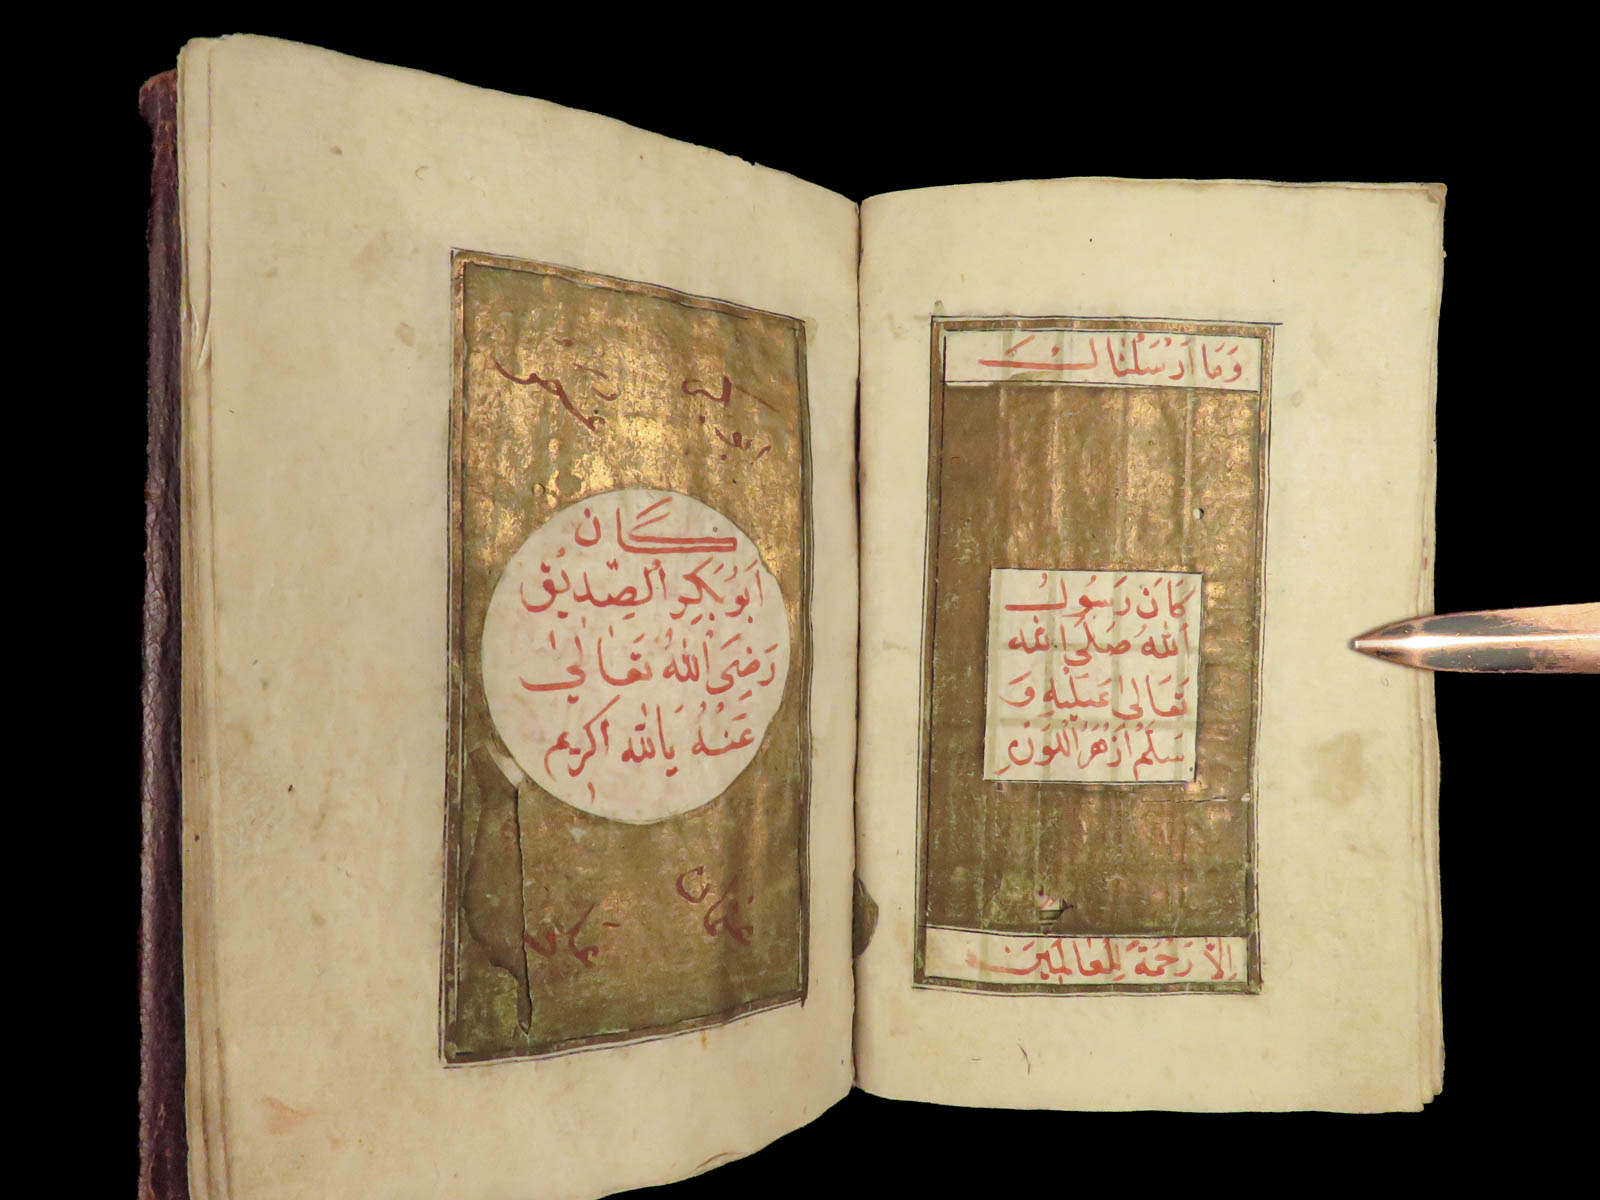 وَمَا اَرْسَلْنَاكَ
كَانَ رَسُولُ
اَللهُ صَلَّى اللهُ
تَعَالٰى عَلَيْهِ وَ
سَلَّمَ اَزْهَرُ اللَّوْنِ
اِلَّا رَحْمَةً لِلْعَالَمِينَ
كَانَ
اَبُو بَكِرِ اَلصِّدِيْقُ
رَضِىَ اَللهُ تَعَالٰى
عَنْهُ يَاالله اكريم
١